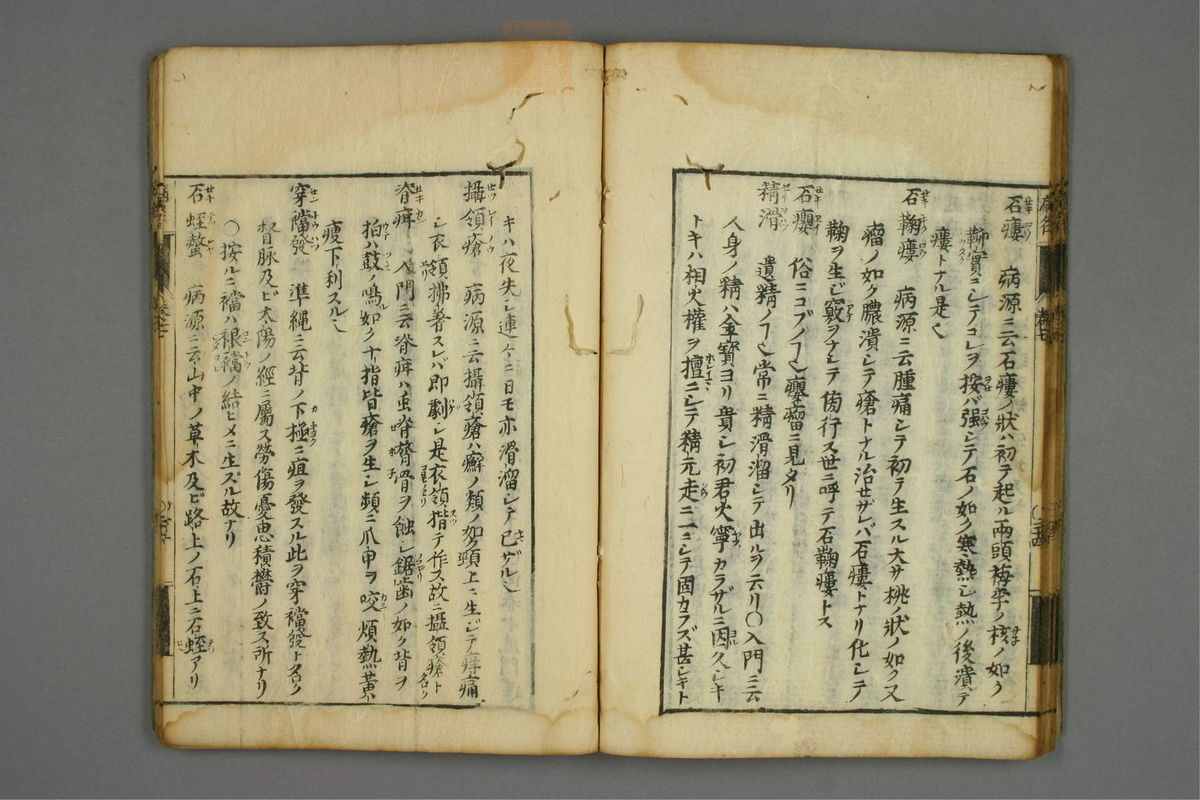 石瘻 病源ニ云石瘻ノ状ハ初テ起ル兩頭梅李ノ核ノ如ク
鞕實ニシテコレヲ按バ强シテ石ノ如ク寒熱シ熱ノ後潰テ
瘻トナル是也
石鞠瘻 病源ニ云腫痛シテ初テ生スル大サ桃ノ状ノ如ク又
瘤ノ如ク膿潰シテ瘡トナル治セザレバ石瘻トナリ化シテ
鞠ヲ生ジ竅ヲナシテ傍行ス世ニ呼テ石鞠瘻トス
石癭 俗ニコブノヿ也癭瘤ニ見タリ
精滑 遺精ノヿ也常ニ精滑溜シテ出ルヲ云リ〇入門ニ云
人身ノ精ハ金寶ヨリ貴シ初君火寧カラザルニ因久シキ
トキハ相火權ヲ擅ニシテ精元走ニ一ニシテ固カラズ甚シキト
キハ夜失シ連ケニ日モ亦滑溜シテ已ザル也
攝領瘡 病源ニ云攝領瘡ハ癬ノ類ノ如ク頸上ニ生ジテ痒痛
シ衣領拂着スレバ即劇シ是衣領揩テ作ス故ニ攝領瘡ト名ク
脊疳 入門ニ云脊疳ハ虫脊膂骨ヲ蝕シ鋸齒ノ如ク背ヲ
拍ハ鼓ノ鳴如ク十指皆瘡ヲ生シ頻ニ爪甲ヲ咬煩熱黃
瘦下利スル也
穿襠發 準繩ニ云背ノ下極ニ疽ヲ發スル此ヲ穿襠發ト名ク
督脉及ビ太陽ノ經ニ屬ス勞傷憂思積欝ノ致ス所ナリ
〇按ルニ襠ハ裩襠ノ結ヒメニ生ズル故ナリ
石蛭螫 病源ニ云山中ノ草木及ビ路上ノ石上ニ石蛭アリ